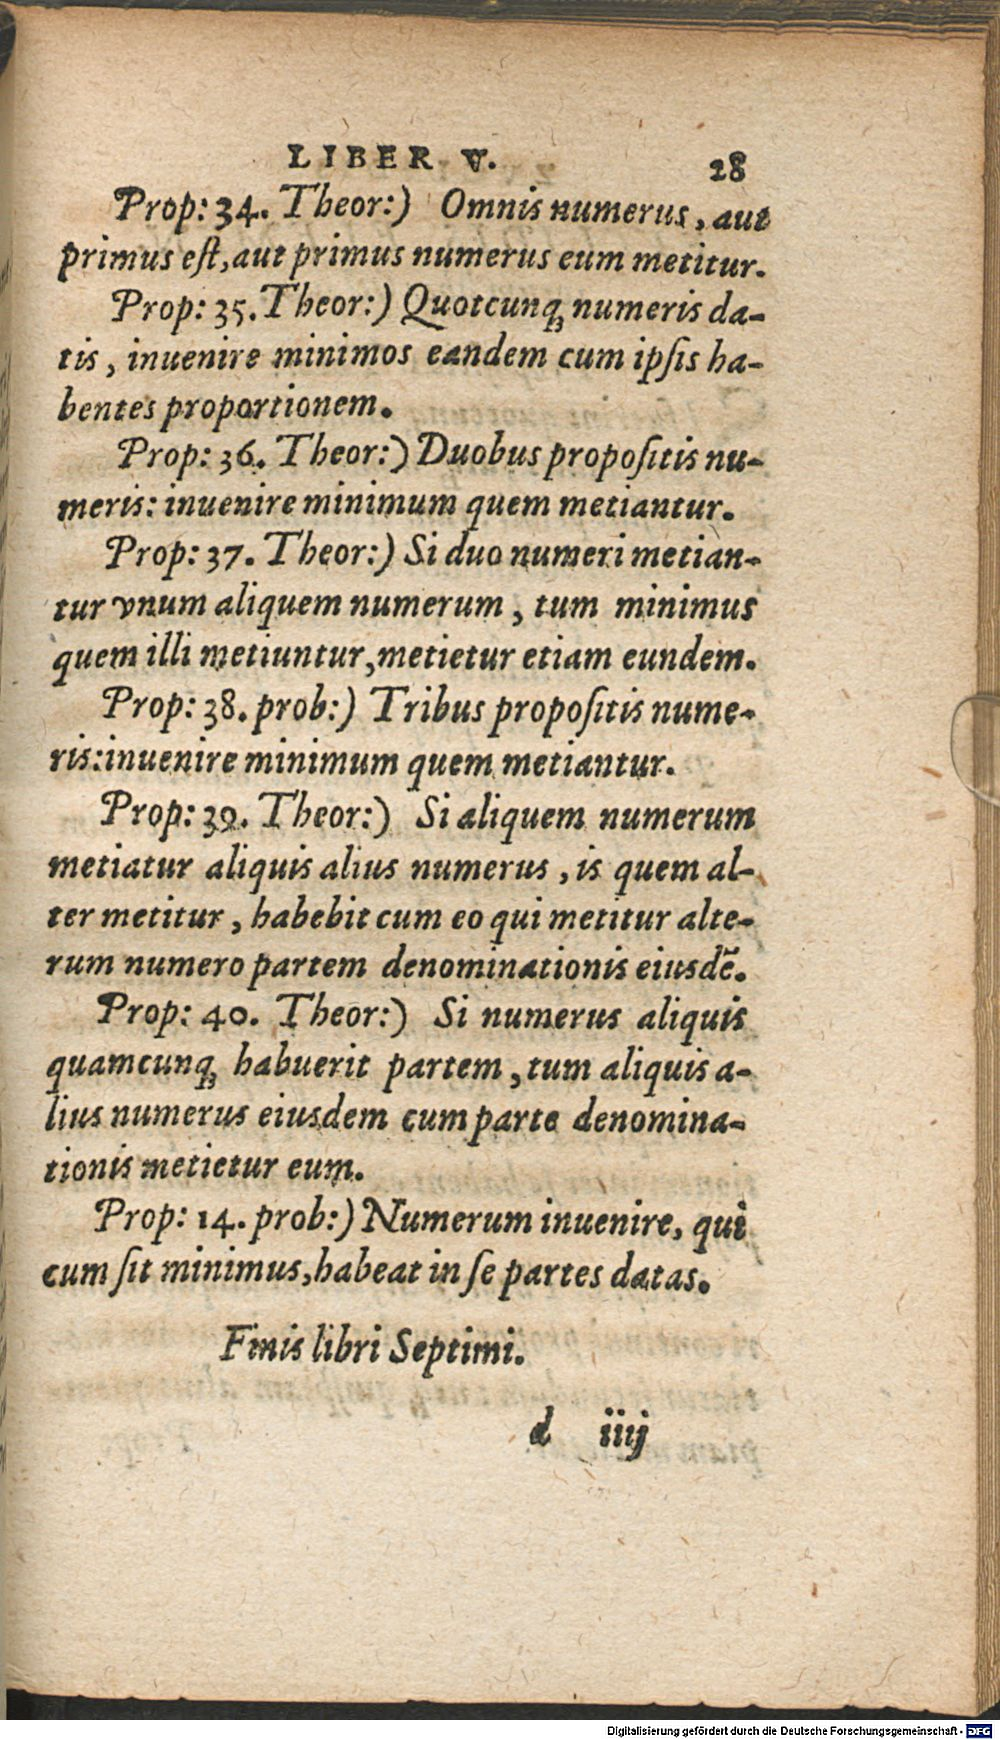 LIBER V. 28
Prop: 34. Theor:) Omnis numerus, aut
primus eſt, aut primus numerus eum metitur.
Prop: 35. Theor:) Quotcunq₃ numeris da-
tis, inuenire minimos eandem cum ipſis ha-
bentes proportionem.
Prop: 36. Theor:) Duobus propoſitis nu-
meris: inuenire minimum quem metiantur.
Prop: 37. Theor:) Si duo numeri metian-
tur vnum aliquem numerum, tum minimus
quem illi metiuntur, metietur etiam eundem.
Prop: 38. prob:) Tribus propoſitis nume-
ris: inuenire minimum quem metiantur.
Prop: 39. Theor:) Si aliquem numerum
metiatur aliquis alius numerus, is quem al-
ter metitur, habebit cum eo qui metitur alte-
rum numero partem denominationis eiusdē.
Prop: 40. Theor:) Si numerus aliquis
quamcunq₃ habuerit partem, tum aliquis a-
lius numerus eiusdem cum parte denomina-
tionis metietur eum.
Prop: 14. prob:) Numerum inuenire, qui
cum ſit minimus, habeat in ſe partes datas.
Finis libri Septimi.
d iiij
Digitalisierung gefördert durch die Deutsche Forschungsgemeinschaft - DFG